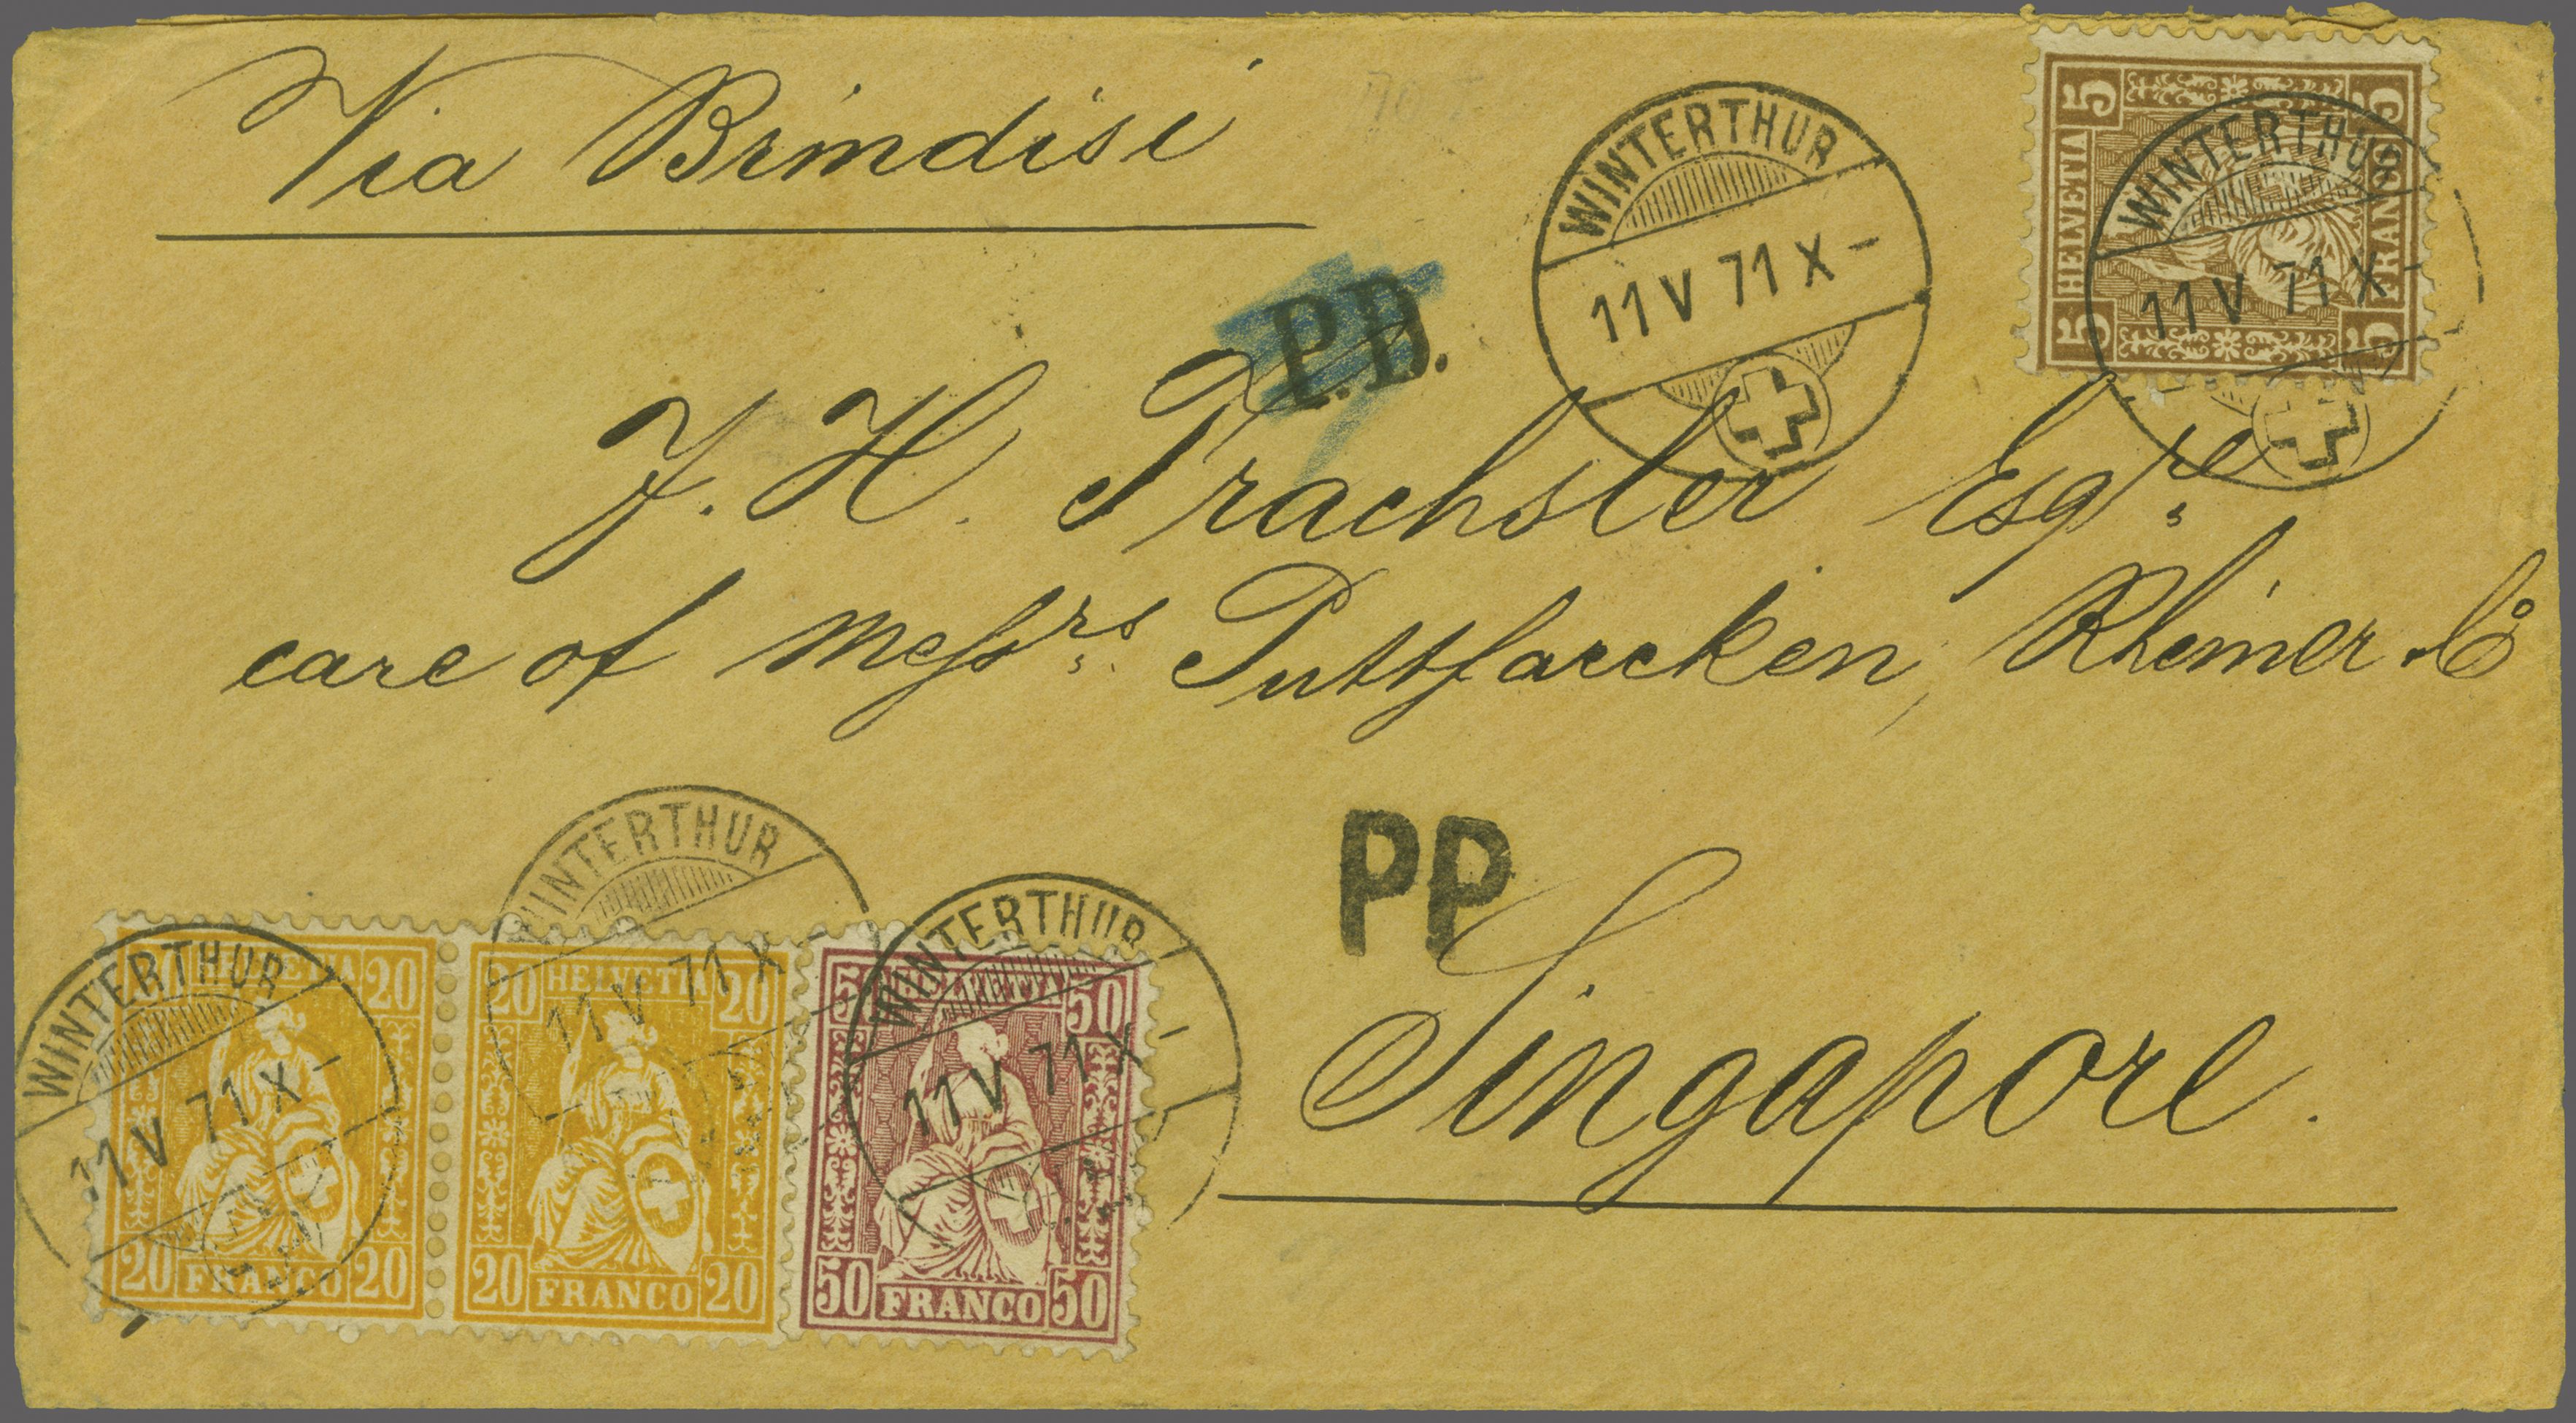 Via Brindisi
P.D.
WINTERTHUR
11 V 71 X -
5 5
HELVETIA
FRANCO
5 5
WINTERTHUR
11 V 71 X -
J. H. Trachsler Esqre
care of Messrs Puttfarcken, Rheiner & Co
PP
Singapore.
WINTERTHUR
11 V 71 X -
20 HELVETIA 20
20 FRANCO 20
WINTERTHUR
11 V 71 X -
20 HELVETIA 20
20 FRANCO 20
WINTERTHUR
11 V 71 X -
50 HELVETIA 50
50 FRANCO 50